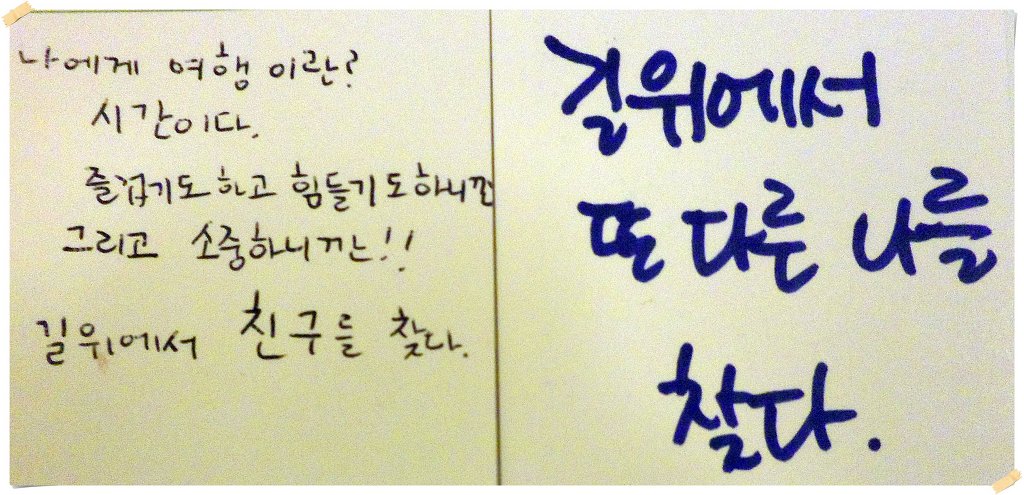 나에게 여행이란?
시간이다.
즐겁기도하고 힘들기도하니깐
그리고 소중하니깐!!
길위에서 친구를 찾다.
길위에서
또 다른 나를
찾다.